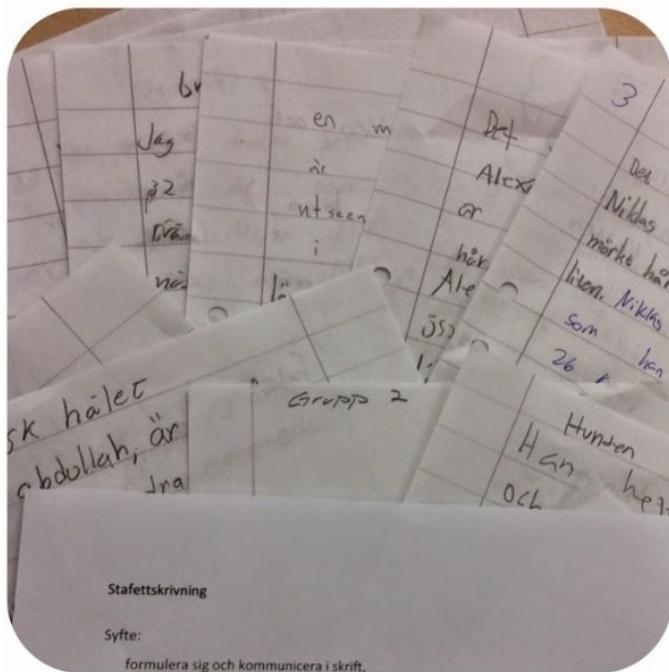 Jag
32
en m
är
utseen
i
Det
Alex
är
hår
Ale
3
Det
Niklas
mörkt hår
liten. Niklas
som han
26
sk hålet
abdullah, är
dra
Grupp 2
Hunden
Han het
och
Stafettskrivning
Syfte:
formulera sig och kommunicera i skrift,